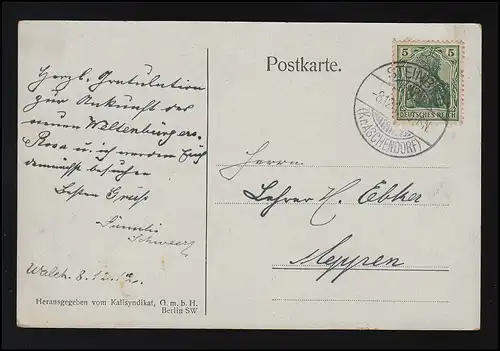 Herzl. Gratulation
zur Ankunft des
neuen Weltenbürgers.
Rosa u. ich werden Euch
demnächst besuchen
Besten Gruß
Walch. 8.12.12.
Herausgegeben vom Kalisyndikat, G. m. b. H.
Berlin SW
Postkarte.
5 5
DEUTSCHES REICH
(Kr. ASCHENDORF)
Herrn
Lehrer H. Ebker
Meppen